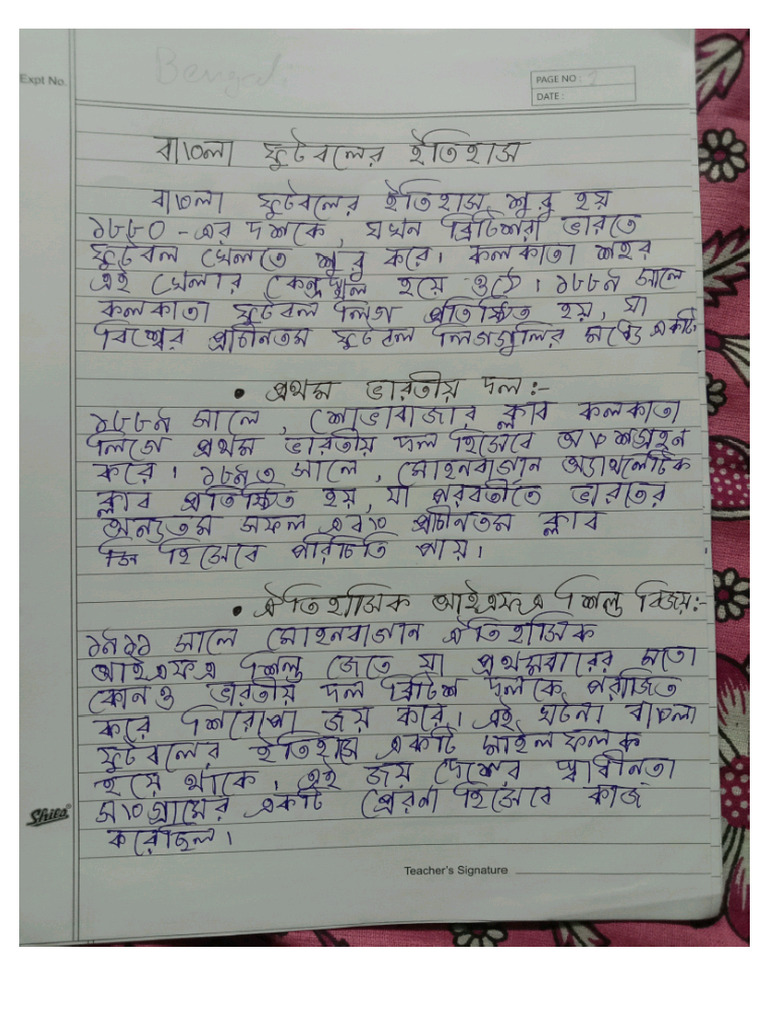 Expt No.
Bengali
PAGE NO : 1
DATE :
বাংলা ফুটবলের ইতিহাস
বাংলা ফুটবলের ইতিহাস শুরু হয়
১৮৮০ -এর দশকে, যখন ব্রিটিশরা ভারতে
ফুটবল খেলতে শুরু করে। কলকাতা শহর
এই খেলার কেন্দ্রস্থল হয়ে ওঠে। ১৮৮৯ সালে
কলকাতা ফুটবল লিগ প্রতিষ্ঠিত হয়, যা
বিশ্বের প্রাচীনতম ফুটবল লিগগুলির মধ্যে একটি
• প্রথম ভারতীয় দল :-
১৮৮৯ সালে, শোভাবাজার ক্লাব কলকাতা
লিগে প্রথম ভারতীয় দল হিসেবে অংশগ্রহন
করে। ১৮৯৩ সালে, মোহনবাগান অ্যাথলেটিক
ক্লাব প্রতিষ্ঠিত হয়, যা পরবর্তীতে ভারতের
অন্যতম সফল এবং প্রাচীনতম ক্লাব
হিসেবে পরিচিতি পায়।
• ঐতিহাসিক আইএফএ শিল্ড বিজয়:-
১৯১১ সালে মোহনবাগান ঐতিহাসিক
আইএফএ শিল্ড জেতে যা প্রথমবারের মতো
কোনও ভারতীয় দল ব্রিটিশ দলকে পরাজিত
করে শিরোপা জয় করে। এই ঘটনা বাংলা
ফুটবলের ইতিহাসে একটি মাইলফলক
হয়ে থাকে। এই জয় দেশের স্বাধীনতা
সংগ্রামের একটি প্রেরনা হিসেবে কাজ
করেছিল।
Shiba
Teacher's Signature